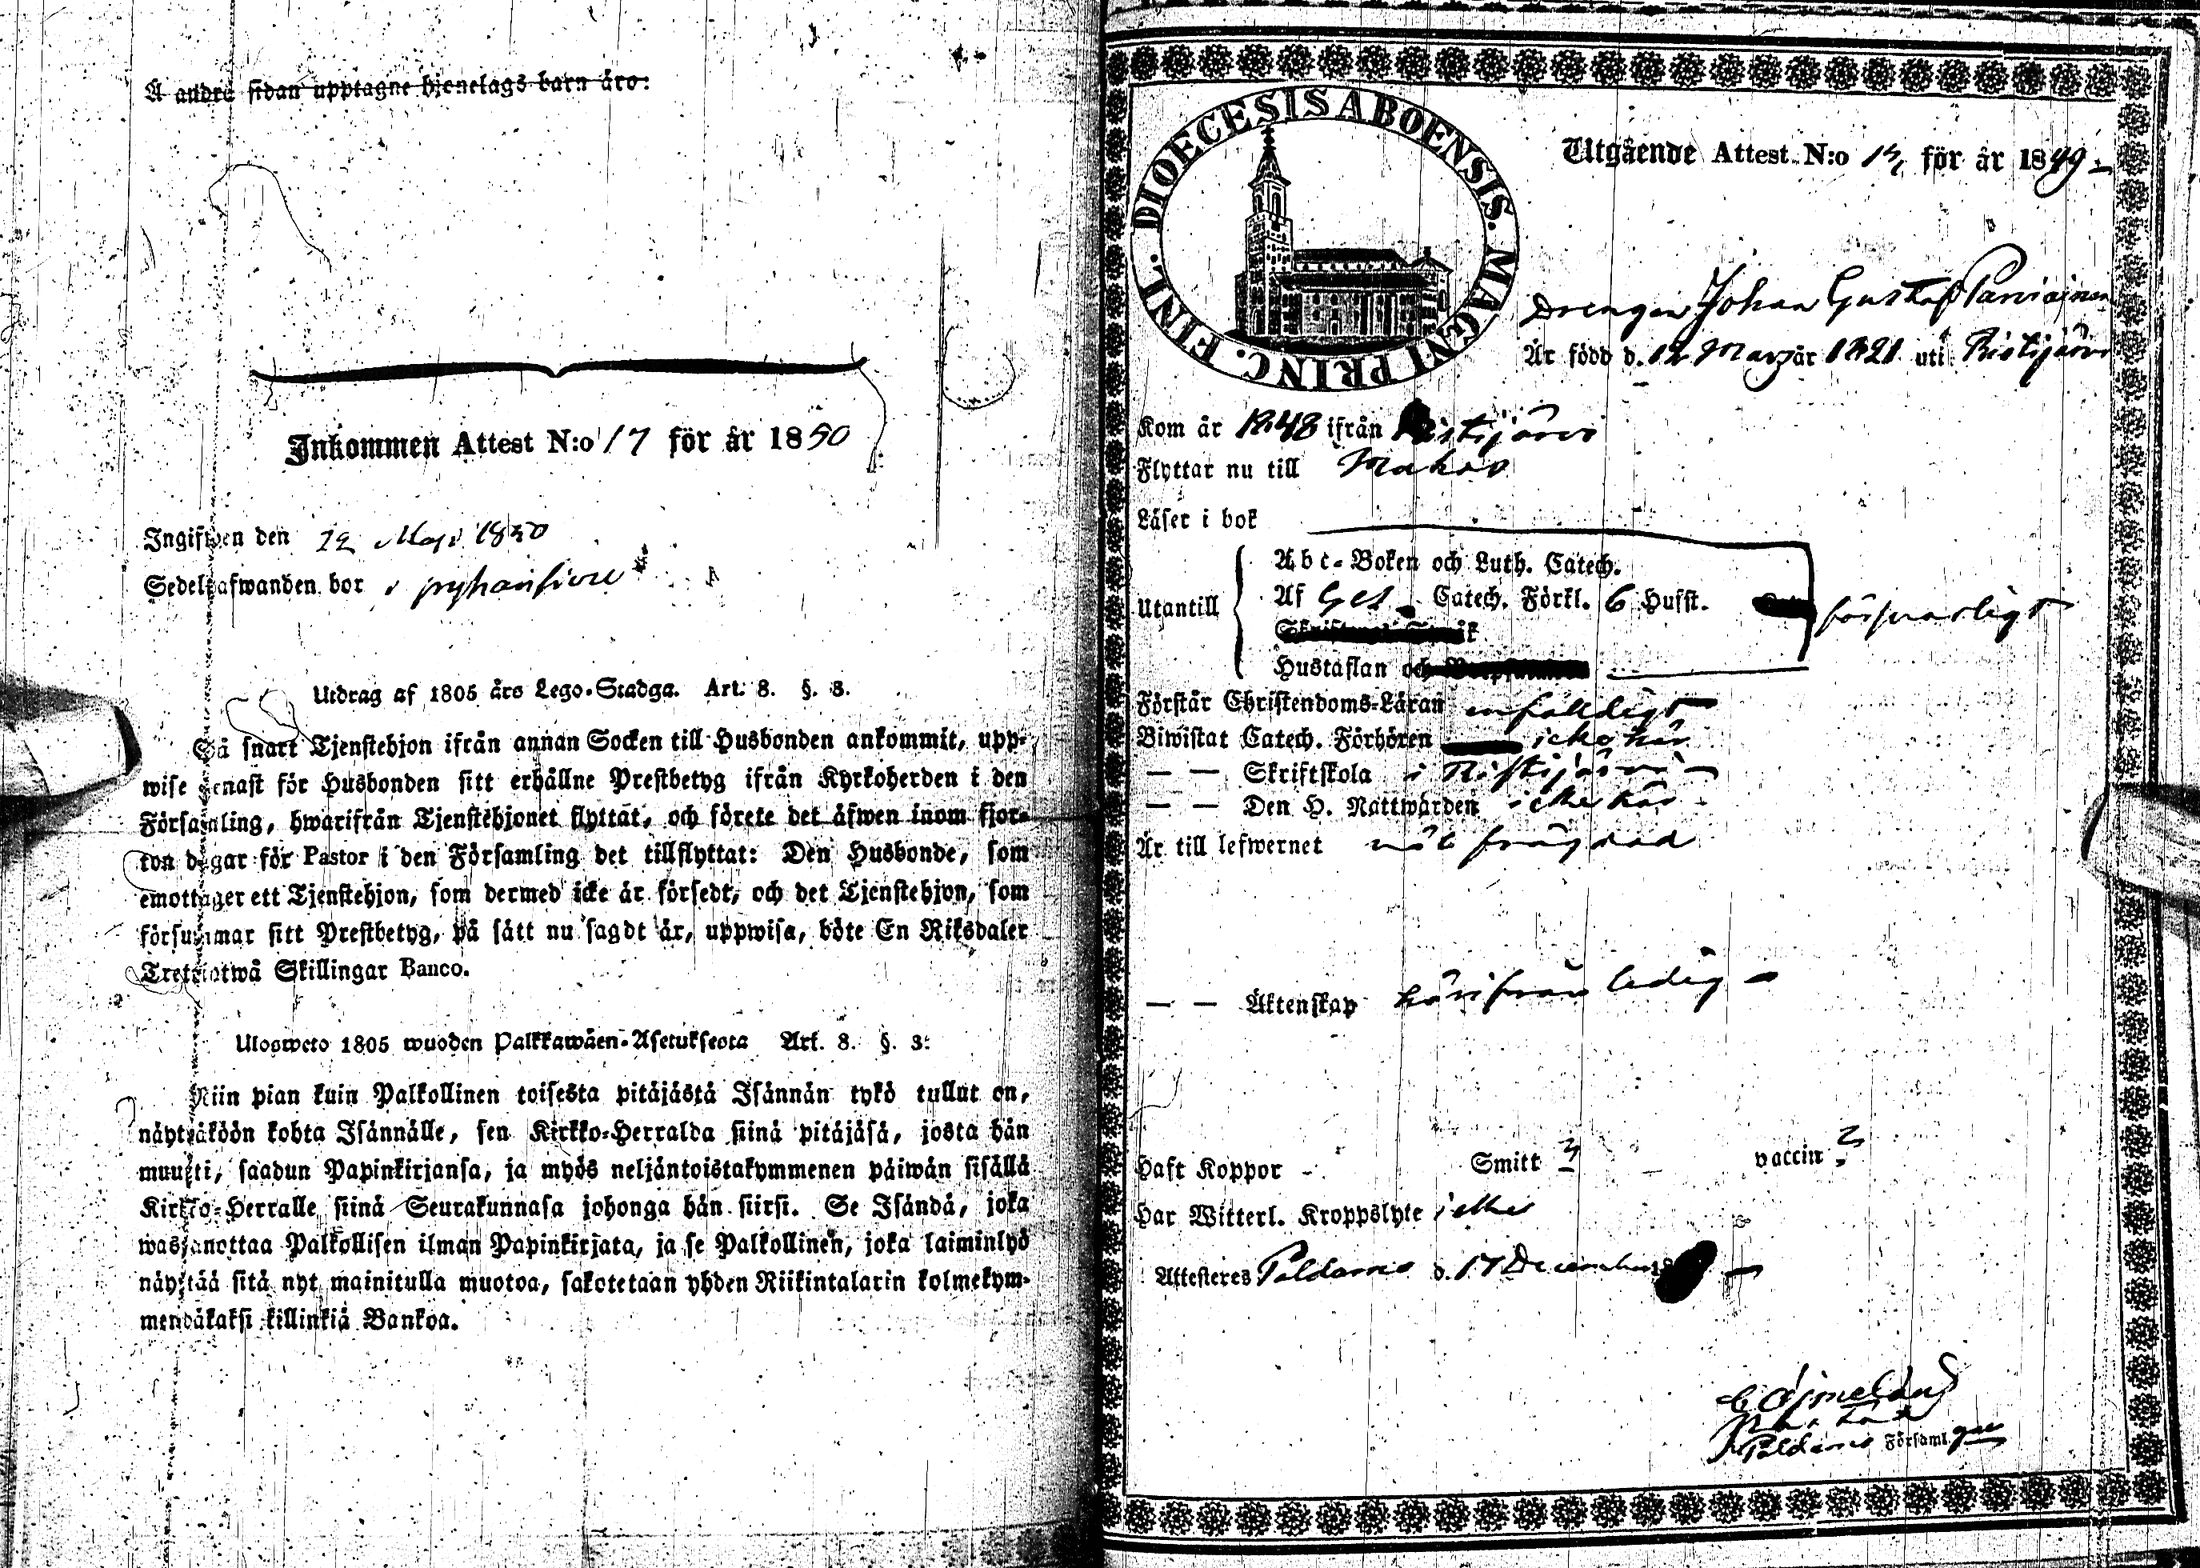 Å andra sidan upptagne hjonelags barn äro:
Inkommen Attest N:o 17 för år 1850
Ingifwen den 12 Maji 1850
Sedelhafwanden bor i pyhänsivu
Utdrag af 1805 års Lego-Stadga. Art. 8. §. 3.
Så snart Tjenstehjon ifrån annan Socken till Husbonden ankommit, upp-
wise genast för Husbonden sitt erhållne Prestbetyg ifrån Kyrkoherden i den
Församling, hwarifrån Tjenstehjonet flyttat, och förete det äfwen inom fjor-
ton dagar för Pastor i den Församling det tillflyttat: Den Husbonde, som
emottager ett Tjenstehjon, som dermed icke är försedt, och det Tjenstehjon, som
försummar sitt Prestbetyg, på sätt nu sagdt är, uppwisa, böte En Riksdaler
Trettiotwå Skillingar Banco.
Ulosweto 1805 wuoden Palkkawäen-Asetuksesta Art. 8. §. 3:
Niin pian kuin Palkollinen toisesta pitäjästä Isännän tykö tullut on,
näyttäköön kohta Isännälle, sen Kirkko-Herralda siinä pitäjäsä, josta hän
muutti, saadun Papinkirjansa, ja myös neljäntoistakymmenen päiwän sisällä
Kirkko-Herralle siinä Seurakunnasa johonga hän siirsi. Se Isändä, joka
wastanottaa Palkollisen ilman Papinkirjata, ja se Palkollinen, joka laiminlyö
näyttää sitä nyt mainitulla muotoa, sakotetaan yhden Riikintalarin kolmekym-
mendäkaksi killinkiä Bankoa.
DIOECESIS ABOENSIS. MAGNI PRINC. FINL.
Utgående Attest. N:o för år 1849
Drengen Johan Gustaf Parviainen
Är född d. 12 Marz år 1821 uti Ristijärvi
Kom år 1848 ifrån Ristijärvi
Flyttar nu till Muhos
Läser i bok
Utantill
Abc-Boken och Luth. Catech.
Af Catech. Förkl. 6 Hufst. försvarligt
Hustaflan och
Förstår Christendoms-Läran enfaldigt
Biwistat Catech. Förhören icke här
— — Skriftskola i Ristijärvi
— — Den H. Nattwarden icke här
Är till lefwernet wäl frägdad
— — Äktenskap härifrån ledig
Haft Koppor Smitt ? vaccin ?
Har Witterl. Kroppslyte icke
Attesteres Paldamo d. 17 December 18
Paldamo Församl.